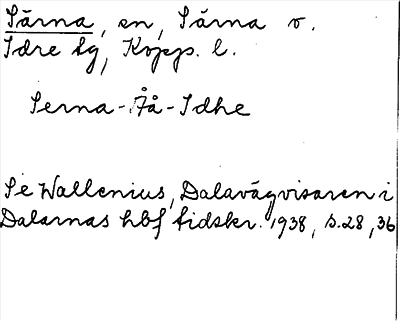 Särna, sn, Särna o.
Idre tg, Kopp. l.
Serna-Åå-Idhe
Se Wallenius, Dalavägvisaren i
Dalarnas hbf tidskr. 1938, s. 28, 36